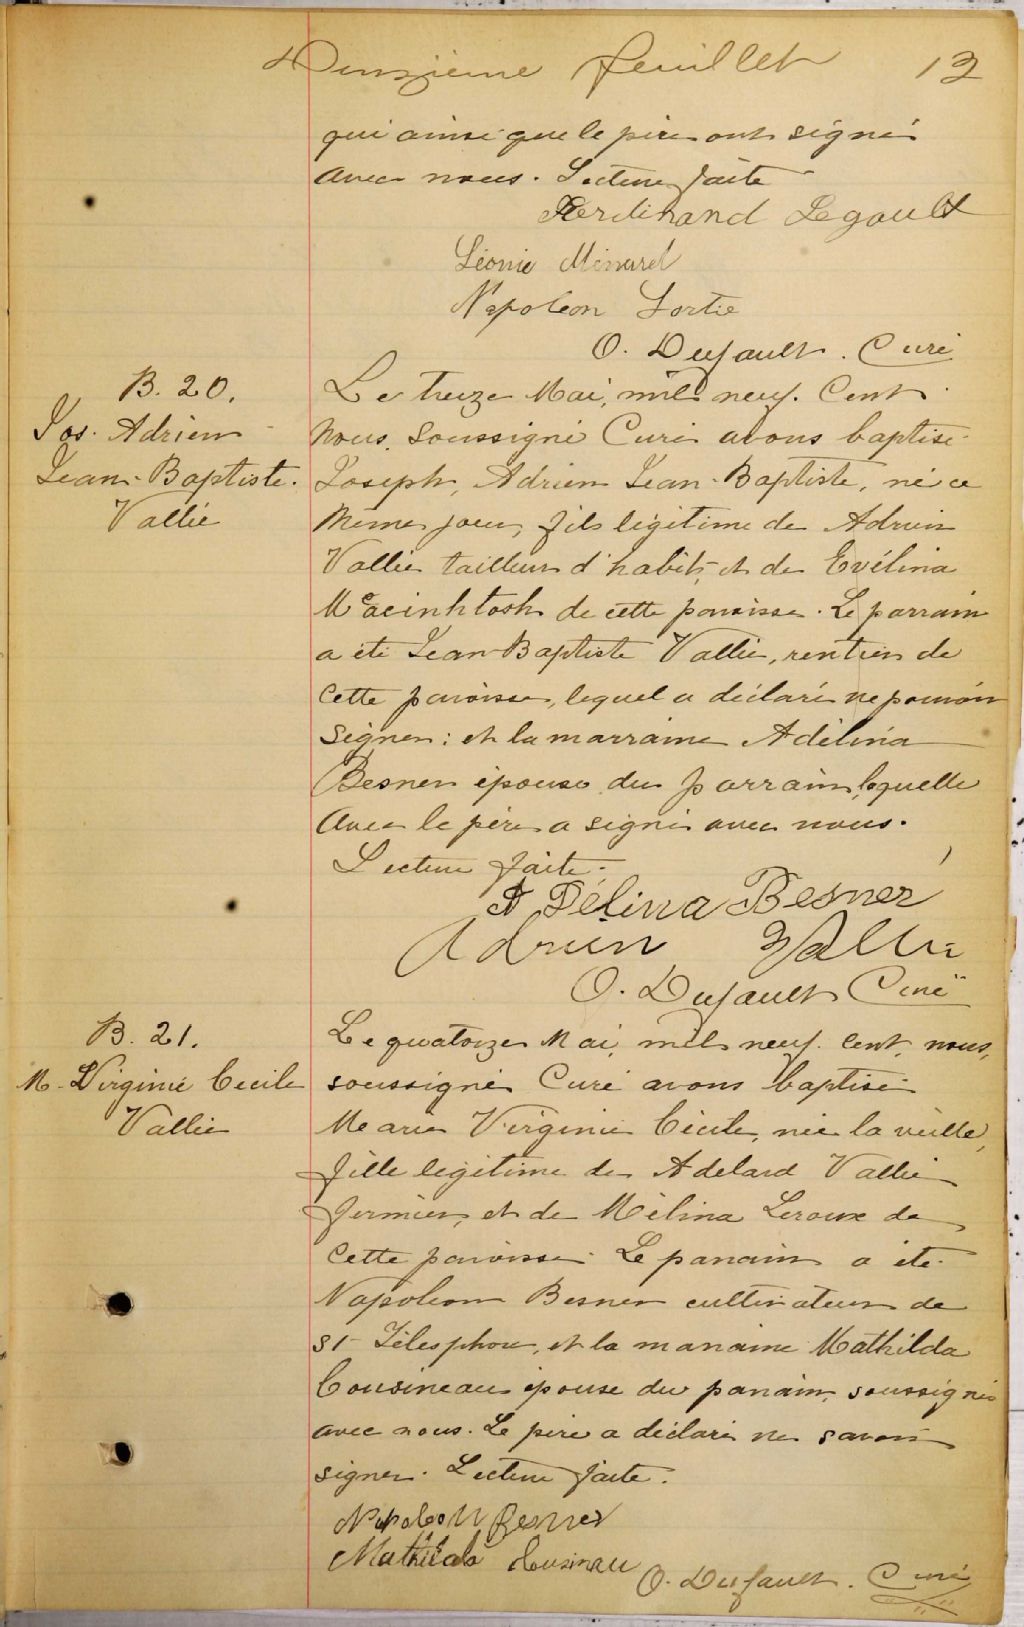 Douzième feuillet 12
qui ainsi que le père ont signé
avec nous. Lecture faite
Ferdinand Legault
Léonie Ménard
Napoléon Sortie
O. Dufault. Curé
B. 20.
Jos. Adrien
Jean-Baptiste.
Vallée
Le treize Mai, mil neuf. Cent
nous, soussigné Curé avons baptisé
Joseph, Adrien Jean-Baptiste, né ce
même jour, fils légitime de Adrien
Vallée tailleur d'habits, et de Evélina
Mcacinhtosh de cette paroisse. Le parrain
a été Jean-Baptiste Vallée, rentier de
cette paroisse, lequel a déclaré ne pouvoir
signer; et la marraine Adélina
Besner épouse du parrain, laquelle
avec le père a signé avec nous.
Lecture faite.
A Délina Besner
Adrien Vallée
O. Dufault Curé
B. 21.
M. Virginie Cecile
Vallée
Le quatorze Mai, mil neuf. Cent, nous,
soussigné Curé avons baptisé
Marie Virginie Cécile, née la veille,
fille légitime de Adelard Vallée
fermier, et de Mélina Leroux de
cette paroisse. Le parrain a été
Napoléon Besner cultivateur de
St-Télesphore, et la marraine Mathilda
Cousineau épouse du parrain, soussignés
avec nous. Le père a déclaré ne savoir
signer. Lecture faite.
Napoleon Besner
Mathilda Cusineau
O. Dufault. Curé